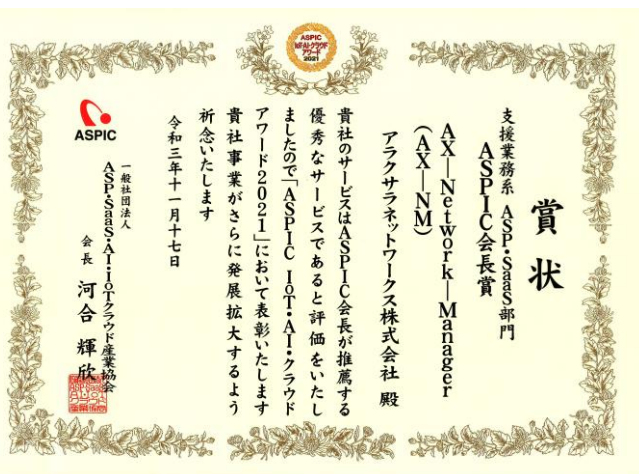 ASPIC
IoT・AI・クラウド
アワード
2021
賞状
支援業務系 ASP・SaaS部門
ASPIC会長賞
AX―Network―Manager
(AX―NM)
アラクサラネットワークス株式会社 殿
貴社のサービスはASPIC会長が推薦する
優秀なサービスであると評価をいたし
ましたので「ASPIC IoT・AI・クラウド
アワード2021」において表彰いたします
貴社事業がさらに発展拡大するよう
祈念いたします
令和三年十一月十七日
ASPIC
一般社団法人
ASP・SaaS・AI・IoTクラウド産業協会
会長 河合 輝欣